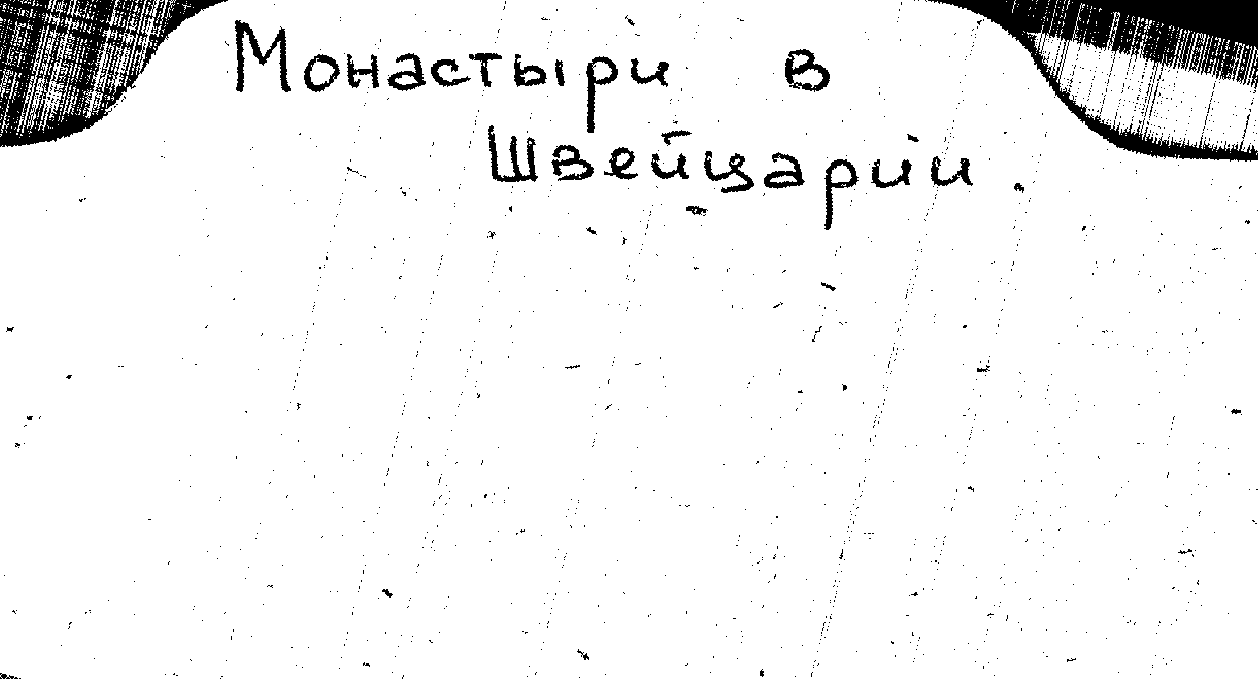 Монастыри в
Швейцарии.